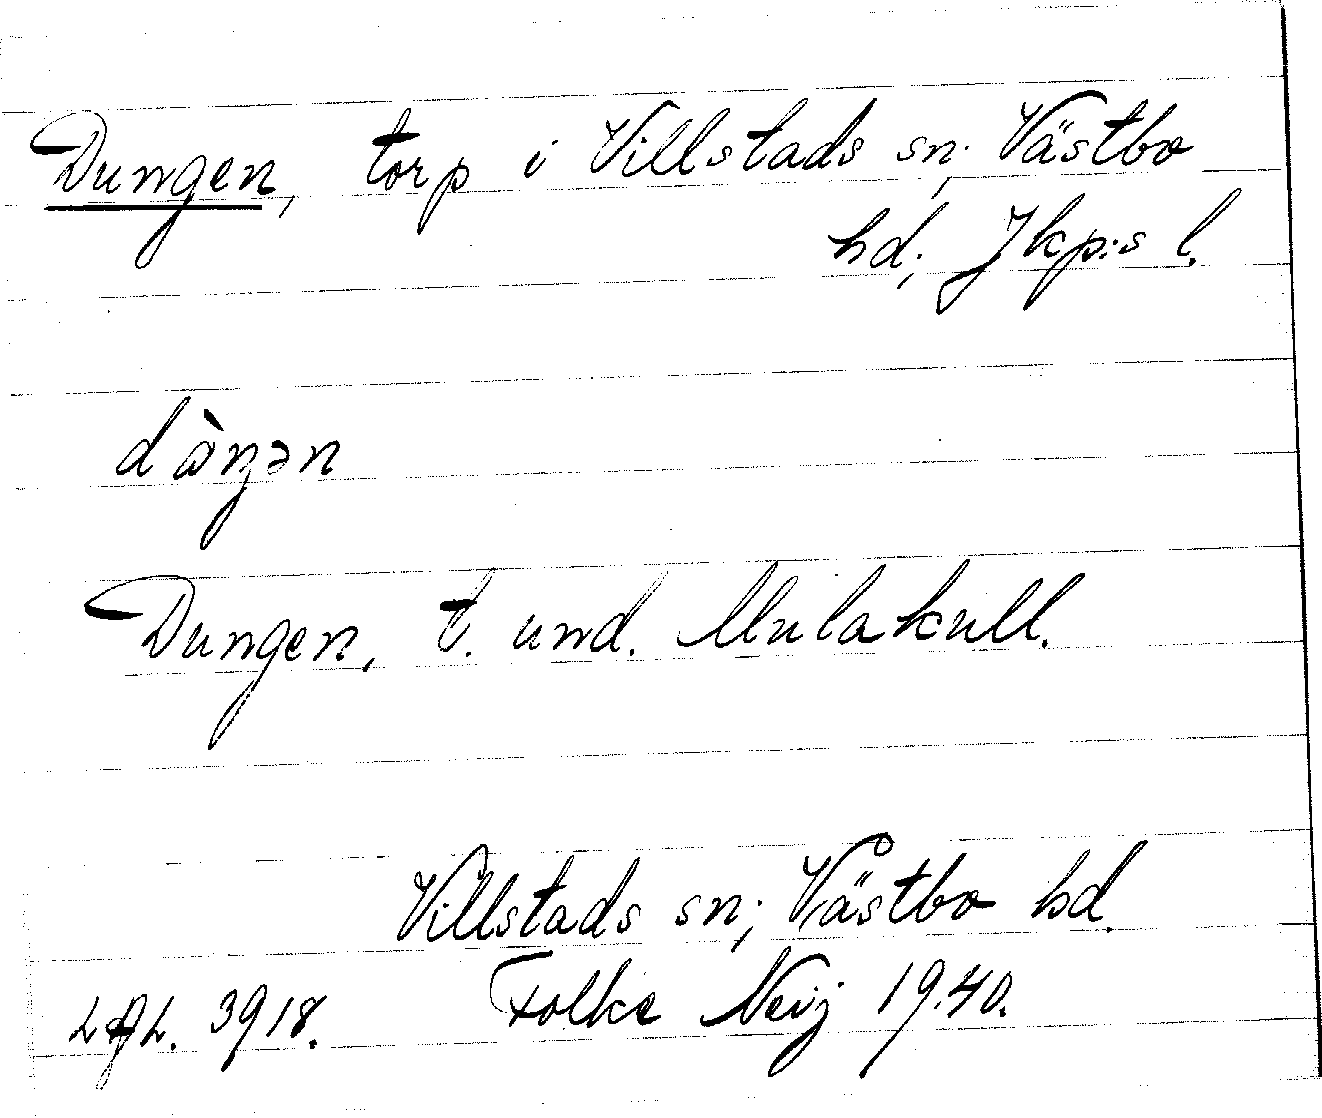 Dungen, torp i Villstads sn; Västbo
hd; Jkp:s l.
dàŋən
Dungen, t. und. Mulakull.
Villstads sn; Västbo hd.
Folke Neij 1940.
LAL. 3918.